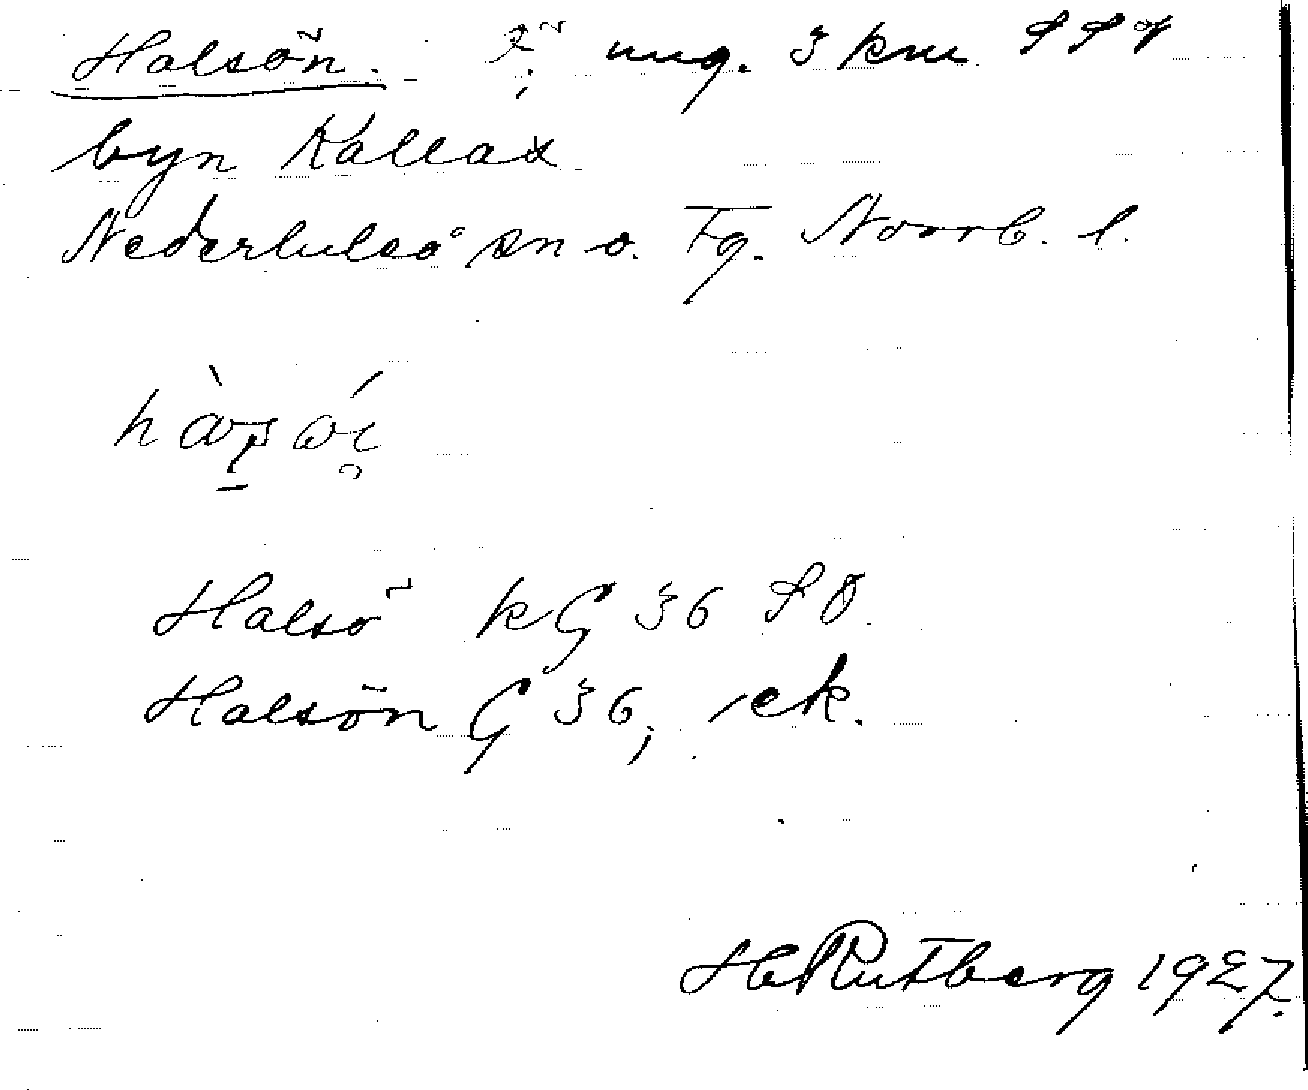 Halsön. Ö; ung. 3 km SSV
byn Kallax
Nederluleå sn o. Tg. Norrb. l.
Halsö kG 36 SO.
Halsön G 36, ek.
H Rutberg 1927.